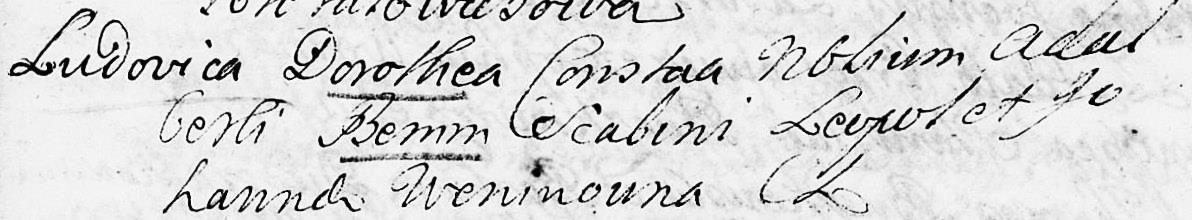 Ludovica Dorothea Constaa Nblium Adal
berti Bemm Scabini Leopol et Jo
hannæ Weninouna CL